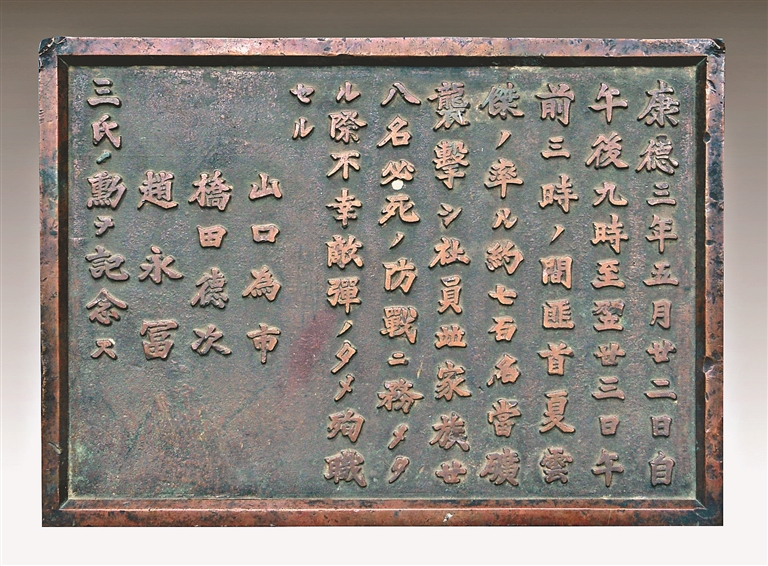 康德三年五月廿二日自
午後九時至翌廿三日午
前三時ノ間匪首夏雲
傑ノ率ル約七百名當礦
襲擊シ社員並家族廿
八名必死ノ防戰ニ務メタ
ル際不幸敵彈ノタメ殉職
セル
山口為市
橋田德次
趙永冨
三氏ノ勳ヲ記念ス